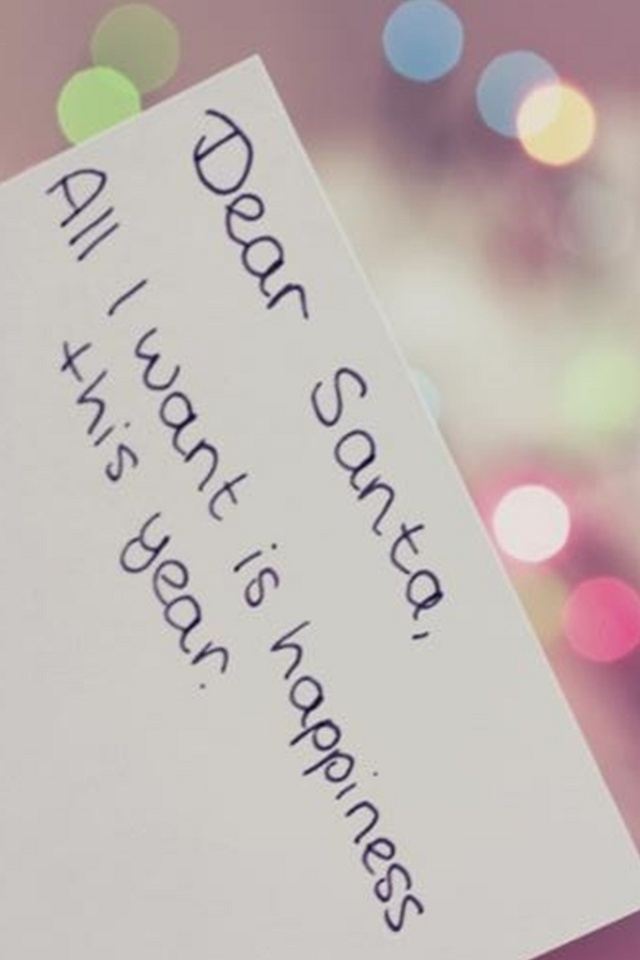 Dear Santa,
All I want is happiness
this year.